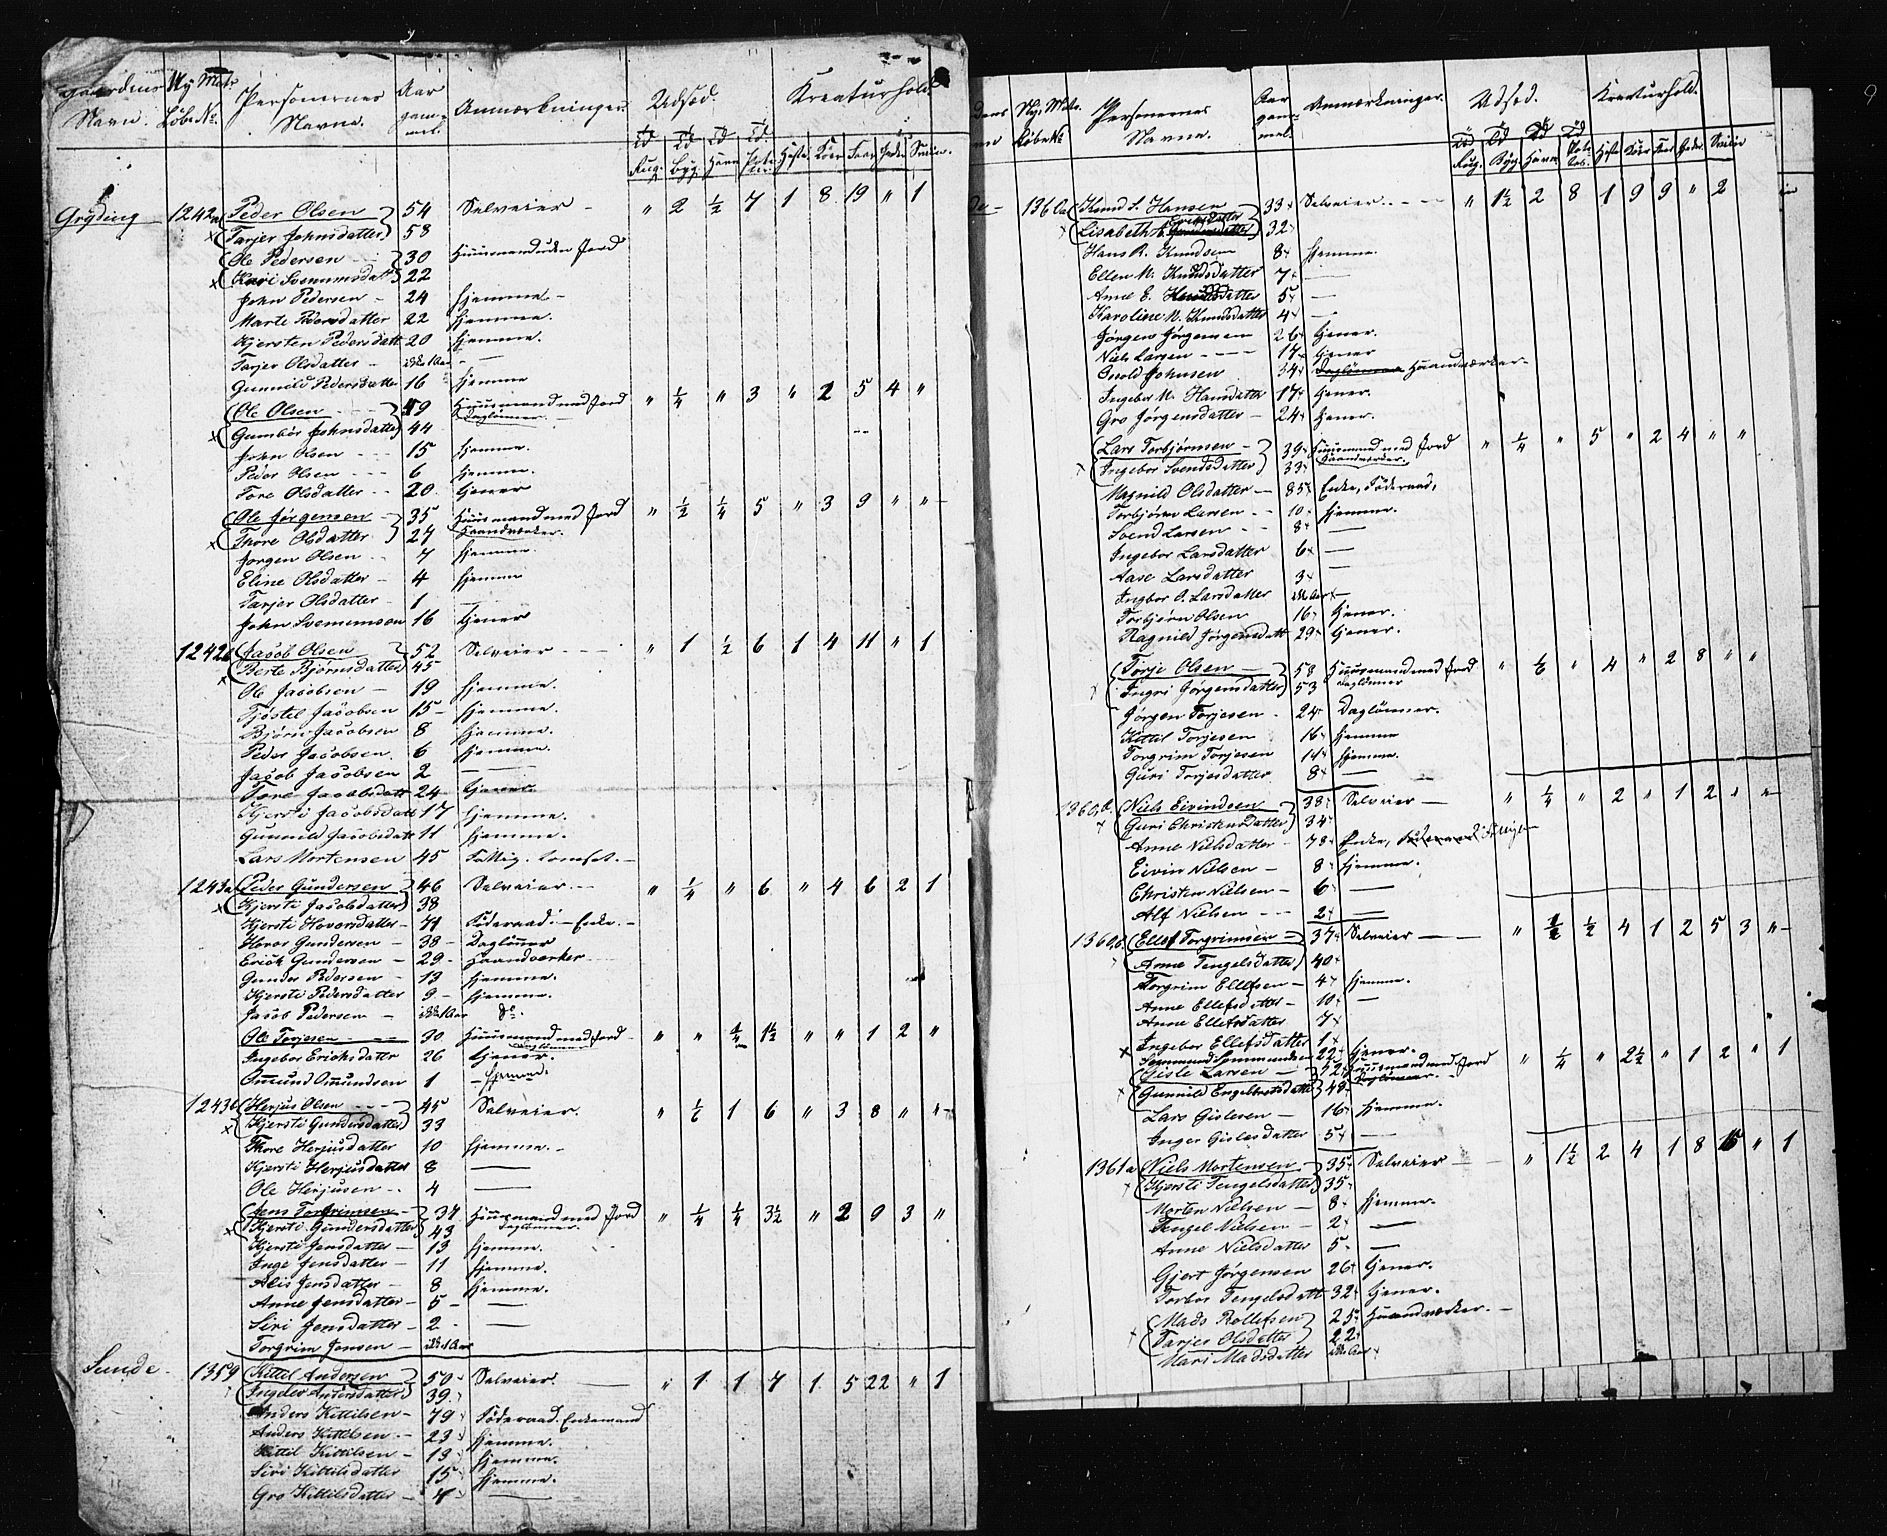 Gaardens Navn. Ny Matr. Løbe No. Personernes Navne. Aar gammel. Anmærkninger Udsæd. Kreaturhold.
Td Rug. Td Byg. Td Havre Td. Heste Køer Faar Svin.
Gryting 1242a Peder Olsen 54 Selveier - " 2 ½ 7 1 8 19 " 1
Tarjer Johnsdatter 58
Ole Pedersen 30 Huusmand uden Jord
Kari Svenumsdatt 22
John Pedersen - 24 hjemme -
Marte Pedersdatter 22 hjemme.
Kjersten Pedersdatt 20 hjemme.
Tarjer Olsdatter - ikke 1 Aar -
Gunnild Pedersdatter 16 hjemme
Ole Olsen 49 Huusmand med Jord Daglønner. " ¼ " 3 " 2 5 4 "
Gumbør Johnsdatter 44
John Olsen 15 hjemme.
Peder Olsen 6 hjemme.
Tore Olsdatter 20 tjener
Ole Jørgensen 35 Huusmand med Jord Haandværker. " ½ ¼ 5 " 3 9 " "
Thore Olsdatter 27
Jørgen Olsen 7 hjemme.
Eline Olsdatter - 4 hjemme
Tarjer Olsdatter - 1 -
John Svenumson 16 tjener
1242b Jacob Olsen 52 Selveier " 1 ½ 6 1 4 11 " 1
Berte Bjørnsdatter 45
Ole Jacobsen - 19 hjemme.
Tjøstel Jacobsen 15 - hjemme.
Bjørn Jacobsen 8 hjemme.
Peder Jacobsen. 6 hjemme.
Jacob Jacobsen 2 -
Tore Jacobsdatt 24 tjener
Kjersti Jacobsdatt 17 hjemme.
Gunnild Jacobsdatt 11 hjemme.
Lars Mortensen 45 Fattig-Lemset. -
1243a Peder Gundersen 46 Selveier. " ¼ " 6 " 4 6 2 1
Kjersti Jacobsdatter 38
Kjersti Hovorsdatter - 71 Føderaad - Enke. -
Hovor Gundersen - 38 - Daglønner
Erich Gundersen - 29 - Haandverker
Gunder Pedersen - 13 hjemme.
Kjersti Pedersdatter 9 - hjemme.
Jacob Pedersen - ikke 1 Aar do.
Ole Terjesen 30 Huusmand med Jord Daglønner " " ¼ 1½ " " 1 2 "
Ingebor Erichsdatter 26 tjener.
Ommund Ommundsen 1 - hjemme.
1243b Herjus Olsen 45 Selveier. " ½ 1 6 " 3 8 " "
Kjersti Gundersdatter 33
Thore Herjusdatter 10 hjemme. -
Kjersti Herjusdatter 8 -
Ole Herjusen 4 -
Jens Torgrimsen 34 Huusmand med Jord Daglønner " ¼ ¼ 3½ " 2 9 3 "
Kjersti Gundersdatter 43
Kjersti Jensdatter - 13 hjemme.
Inge Jensdatter - 11 hjemme.
Alis Jensdatter - 8 hjemme.
Anne Jensdatter - 5 - -
Siri Jensdatter - 2 -
Torgrim Jensen - ikke 1 Aar
Sunde - 1359 Kittel Andersen 50 Selveier. " 1 1 7 1 5 22 " 1
Ingeler Andersdatter 39
Anders Kittilsen - 79 Føderaad. Enkemand
Anders Kittelsen - 23 hjemme.
Kittil Kittilsen - 13 hjemme.
Siri Kittilsdatter 15 hjemme.
Gro Kittilsdatter - 4 -
Ny. Matr. Løbe No Personernes Navne. Aar gammel. Anmærkninger. Udsæd. Kreaturhold.
Td Rug. Td Byg Td Havre Td Heste Køer Svin
1360a Knud S. Hansen 33 Selveier. " 1½ 2 8 1 9 9 " 2
Lisabeth 32
Hans R. Knudsen 8 hjemme.
Ellen M. Knudsdatter 7 -
Anne E. 5 -
Karoline N. Knudsdatter 4 -
Jørgen Jørgensen 26 tjener.
Niels Larsen 17 tjener
Onold Johnsen 34 Daglønner Haandværker -
Ingebor M. Hansdatter 17 tjener.
Gro Jørgensdatter - 24 tjener.
Lars Torbjørnsen - 39 Huusmand med Jord Haandværker. " ¼ " 5 " 2 4 " "
Ingebor Svendsdatter 33
Magnild Olsdatter - 85 Enke, Føderaad,
Torbjørn Larsen 10 hjemme.
Svend Larsen 8 -
Ingebor Larsdatter 6 -
Aase Larsdatter 3 -
Ingbor O. Larsdatter ikke Aar -
Torbjørn Olsen 16 tjener.
Ragnild Jørgensdatt 29 tjener.
Torje Olsen - 58 Huusmand med Jord Daglønner " " 4 " 2 8 " "
Ingri Jørgensdatter 53
Jørgen Torjesen - 24 Daglønner.
Kittil Torjesen 16 hjemme
Torgrim Torjesen 14 hjemme.
Guri Torjesdatter 8 -
1360b. Niels Eivindsen 38 Selveier - " ¼ " 2 " 1 2 " "
Guri Christensdatter 34
Anne Nielsdatter - 78 Enke,
Eivin Nielsen - 8 hjemme.
Christen Nielsen - 6 -
Alf Nielsen 2 -
1360b. Ellef Torgrimsen - 37 Selveier - " ½ ½ 4 1 2 5 3 "
Anne Tengelsdatter 40
Torgrim Ellefsen - 4 hjemme.
Anne Ellefsdatter - 10 -
Anne Ellefsdatter 7
Ingebor Ellefsdatter 1
22 tjener.
Gisle Larsen 52 Huusmand med Jord Daglønner. " ¼ " 2½ " 1 2 " 1
Gunnild Engelbretsdatt 48
Lars Gislesen - 16 hjemme.
Inger Gislesdatter 5 -
1361a Niels Mortensen 35 Selveier " 1½ 2 4 1 8 15 " 1
Kjersti Tengelsdatter 35
Morten Nielsen - 8 hjemme.
Tengel Nielsen - 2 -
Anne Nielsdatter 5 -
Gjert Jørgensen 26 tjener.
Torbor Tengelsdatt 32 tjener.
Mads Rollefsen 25 Haandværker. -
Tarjer Olsdatter 22
Mari Madsdatter ikke Aar